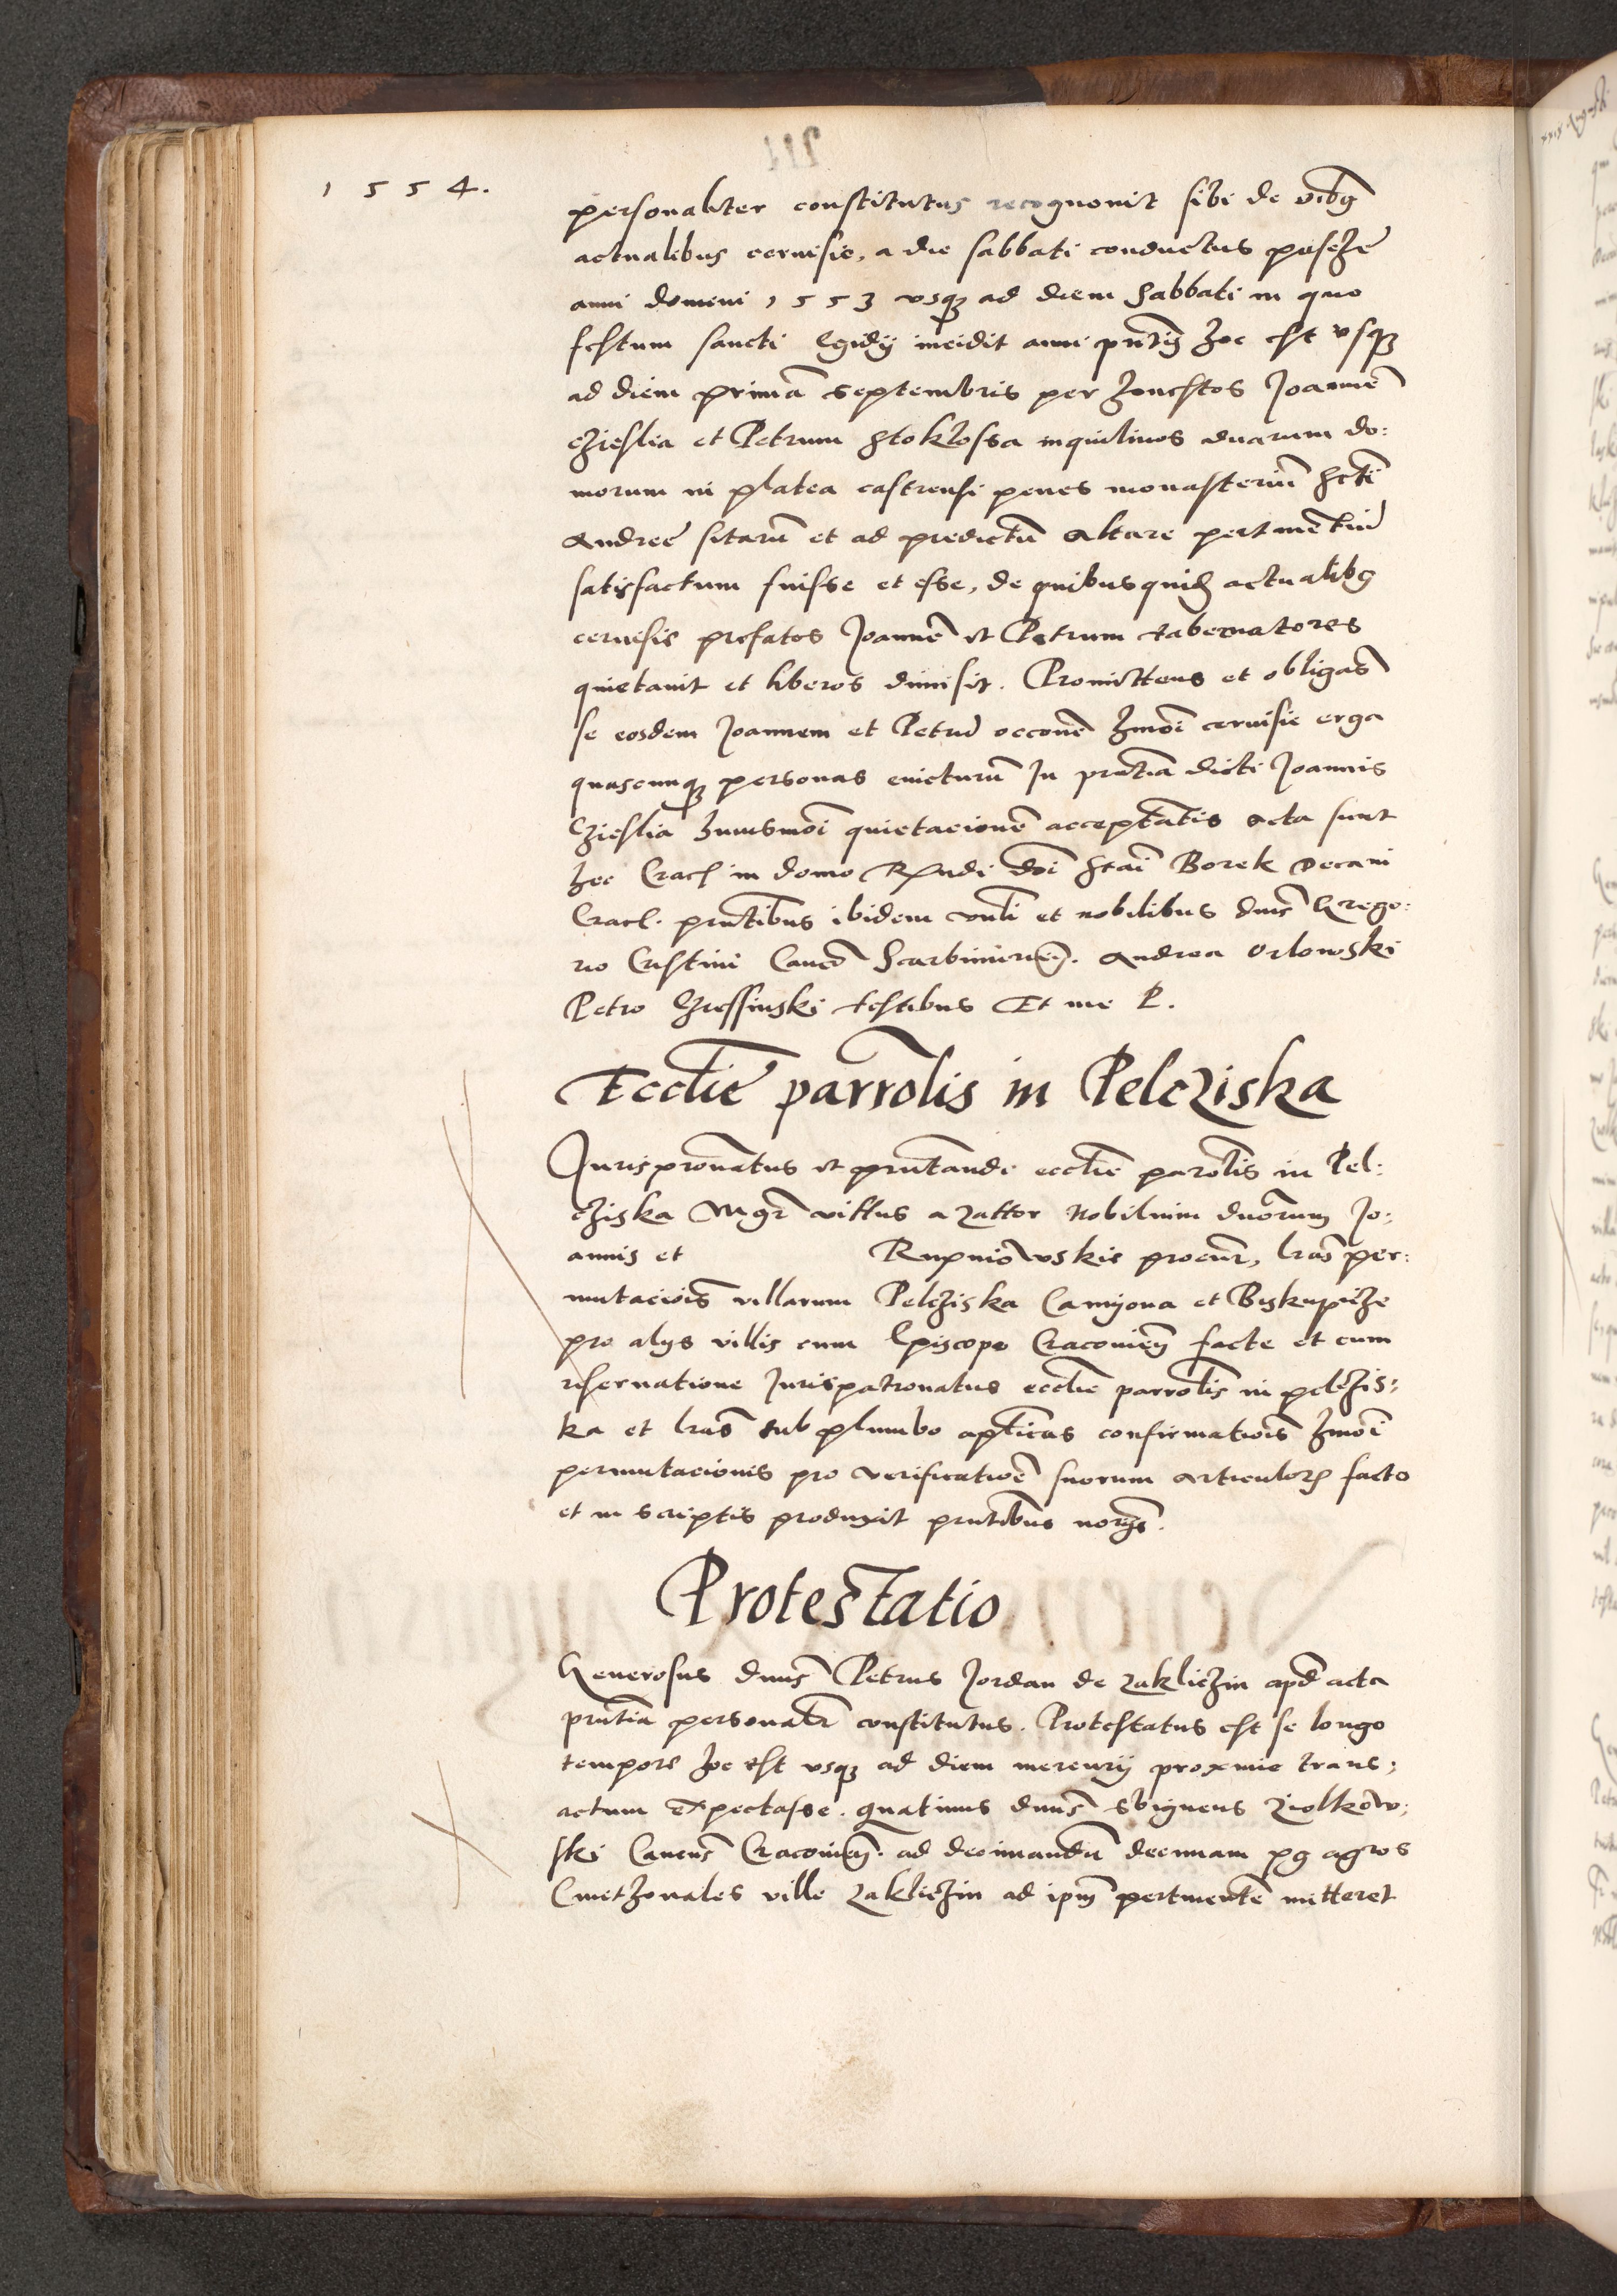 1554.
personaliter constitutus recognovit sibi de oībg
actualibus cervisie, a die sabbati conductus pasche
anni domini 1553 usq3 ad diem sabbati in quo
festum sancti Egidij incidit anni pntis hoc est usq3
ad diem primā septembris per honestos Joannē
Czieslia et Petrum Stoklossa inquilinos duarum do:
morum in platea castrensi penes monasteriū scti
Andree sitarū et ad predictū altare pertinētiū
satisfactum fuisse et esse, de quibusquid actualibg
cervisie prefatos Joannē et Petrum tabernatores
quietavit et liberos dimisit. Promittens et obligās
se eosdem Joannem et Petrū occonē hmōi cervisie erga
quascunq3 personas evicturū In pntia dicti Joannis
Czieslia huiusmōi quietacionē acceptātis acta sunt
hec Crac in domo Rndi dni Stai Borek Decani
Crac. pntibus ibidem vnli et nobilibus dnis Grego:
rio Cristini Canco Scarbimirien. Andrea Orlowski
Petro Cziessinski testibus Et me P.
Ecclie parrolis in Pelcziska
Jurispronatus et pntandi ecclie parolis in Pel:
cziska Mgr vittus a Zattor Nobilium dnorum Jo:
annis et Rupniowskie procur, lras per:
mutaciois villarum Pelcziska Camyona et Biskupicze
pro alijs villis cum Episcopo Cracovien facte et cum
reservatione Jurispatronatus ecclie parrolis in pelczis:
ka et lras sub plumbo aplicas confirmatiois hmōi
permutacionis pro verificatioē suorum articulor facto
et in scriptis produxit pntibus noris.
Protestatio
Generosus dnus Petrus Jordan de Zakliczin apd acta
pntia personalr constitutus. Protestatus est se longo
tempore hoc est usq3 ad diem mercurij proxime trans:
actum expectasse. quatinus dnus Sbigneus Ziolkow:
ski Cancus Cracovien. ad decimandū decimam pg agros
Cmethonales ville Zakliczin ad ipm pertinentē mitteret